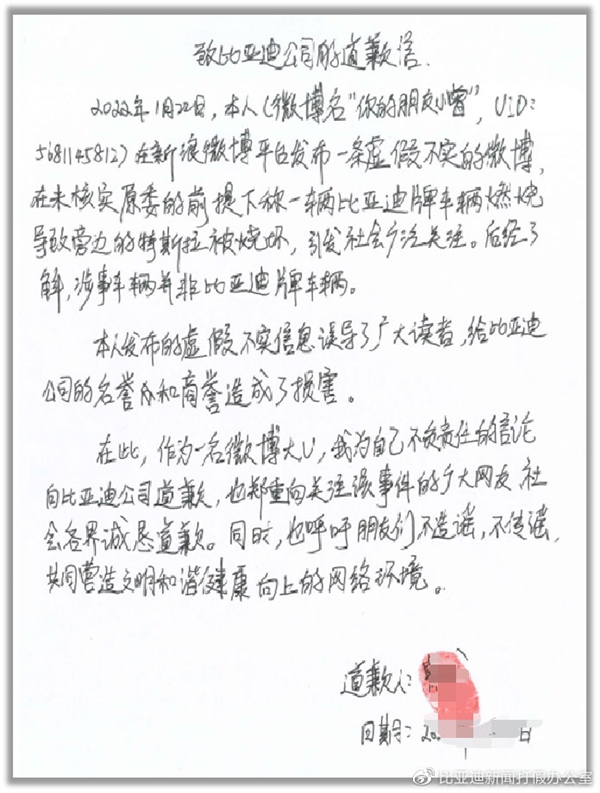 致比亚迪公司的道歉信
2022年1月22日，本人（微博名“你的朋友小曾”，UID：
5681145812）在新浪微博平台发布一条虚假不实的微博，
在未核实原委的前提下称一辆比亚迪牌车辆燃烧
导致旁边的特斯拉被烧坏，引发社会广泛关注。后经了
解，涉事车辆并非比亚迪牌车辆。
本人发布的虚假不实信息误导了广大读者，给比亚迪
公司的名誉和商誉造成了损害。
在此，作为一名微博大V，我为自己不负责任的言论
向比亚迪公司道歉，也郑重向关注该事件的广大网友、社
会各界诚恳道歉。同时，也呼吁朋友们不造谣，不传谣，
共同营造文明和谐健康向上的网络环境。
道歉人：
日期：20 日
@比亚迪新闻打假办公室